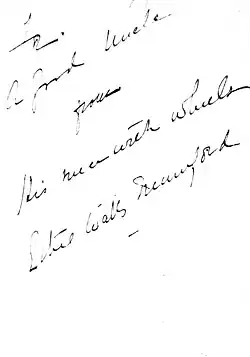 To.
A Good Uncle
from
His niece with wheels
Ethel Watts Mumford